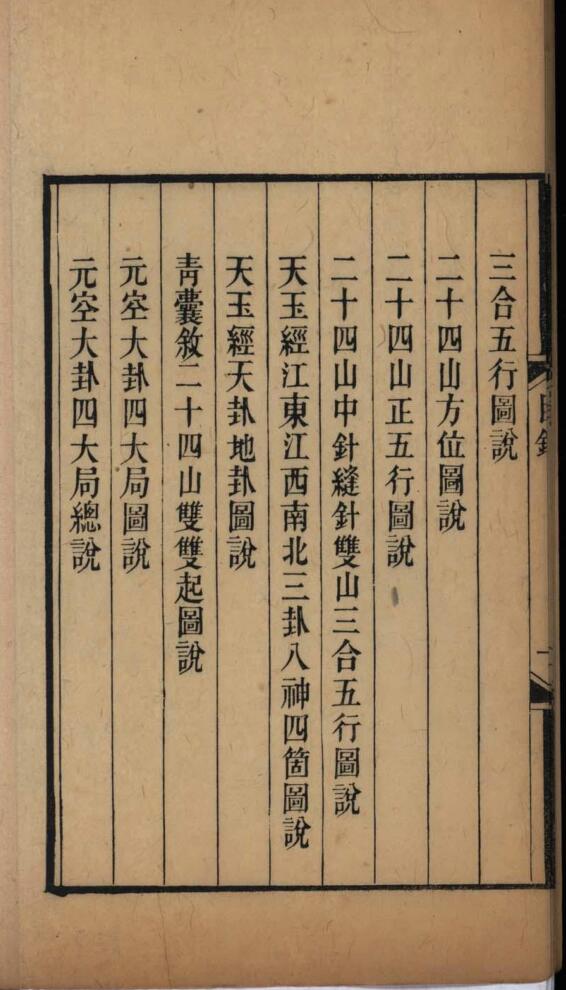 三合五行圖說
二十四山方位圖說
二十四山正五行圖說
二十四山中針縫針雙山三合五行圖說
天玉經江東江西南北三卦八神四箇圖說
天玉經天卦地卦圖說
青囊敘二十四山雙雙起圖說
元空大卦四大局圖說
元空大卦四大局總說